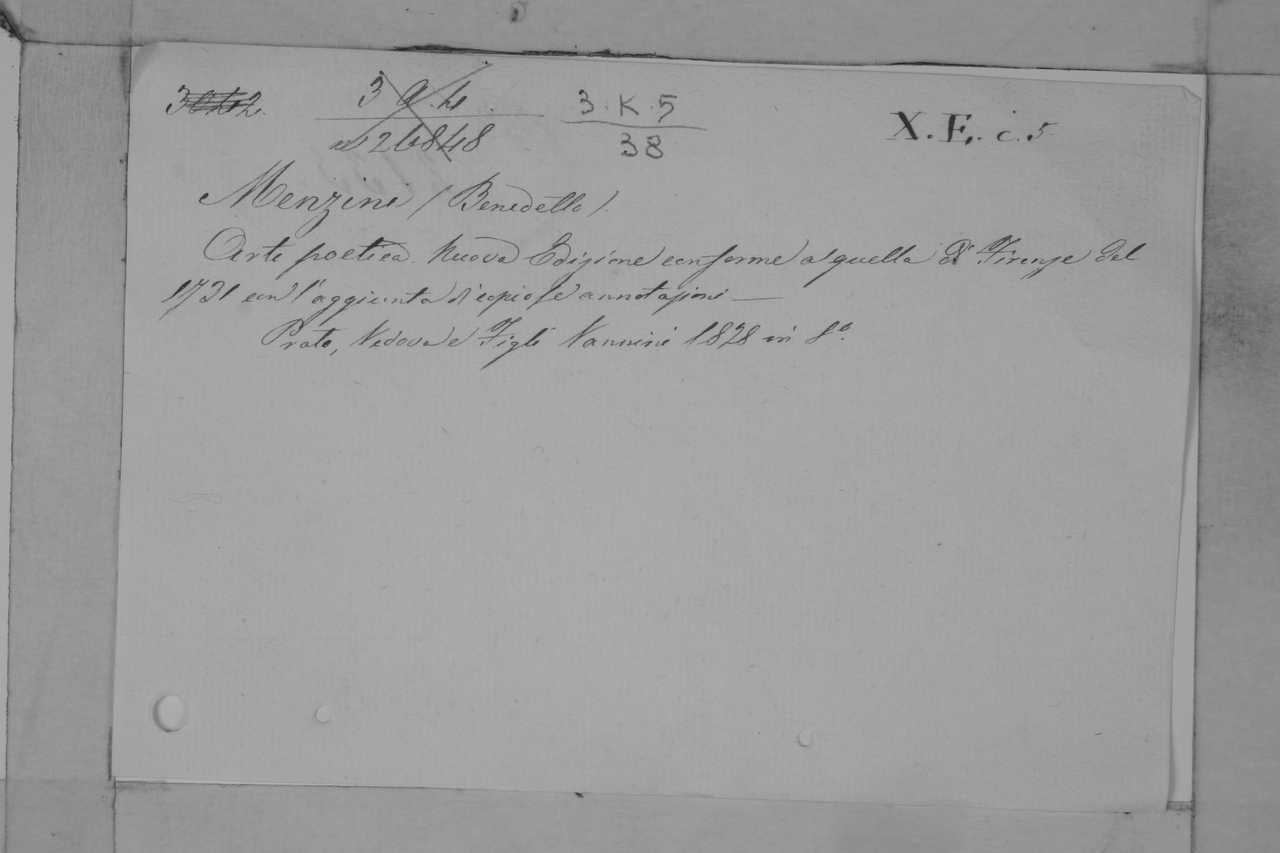 3.K.5
38
X. F. c. 5
Menzini (Benedetto).
Arte poetica. Nuova Edizione conforme a quella di Firenze del
1731 con l'aggiunta di copiose annotazioni —
Prato, Vedova e Figli Vannini 1828 in 8º.